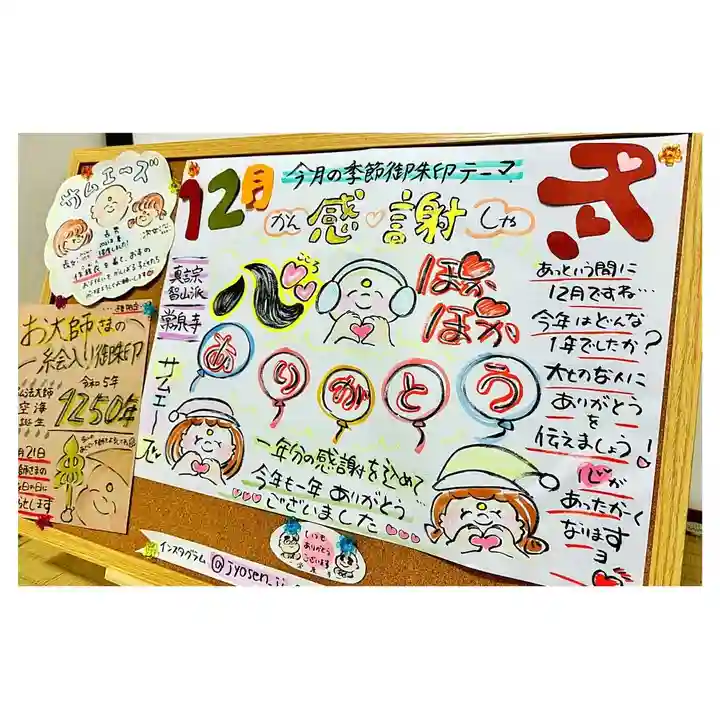 サムエーズ
長女
次女
お大師さまの
絵入り御朱印
令和5年
弘法大師
空海
誕生
1250年
月21日
12月
今月の季節御朱印テーマ
かん 感謝 しゃ
真言宗
智山派
常泉寺
サムエーズ
心
こころ
ぽか
ぽか
ありがとう
一年分の感謝を込めて
今年も一年 ありがとう
ございました
あっという間に
12月ですね…
今年はどんな
1年でしたか?
大切なんに
ありがとう
を
伝えましょう!
心が
あったかく
なります
ヨ
いつも
ありがとう
ございます
インスタグラム
@jyosen_ji